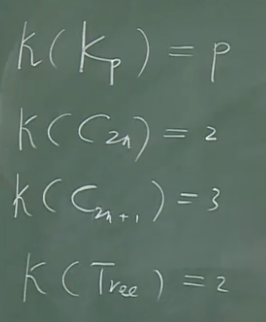 K(Kp) = p
K(C2n) = 2
K(C2n+1) = 3
K(Tree) = 2